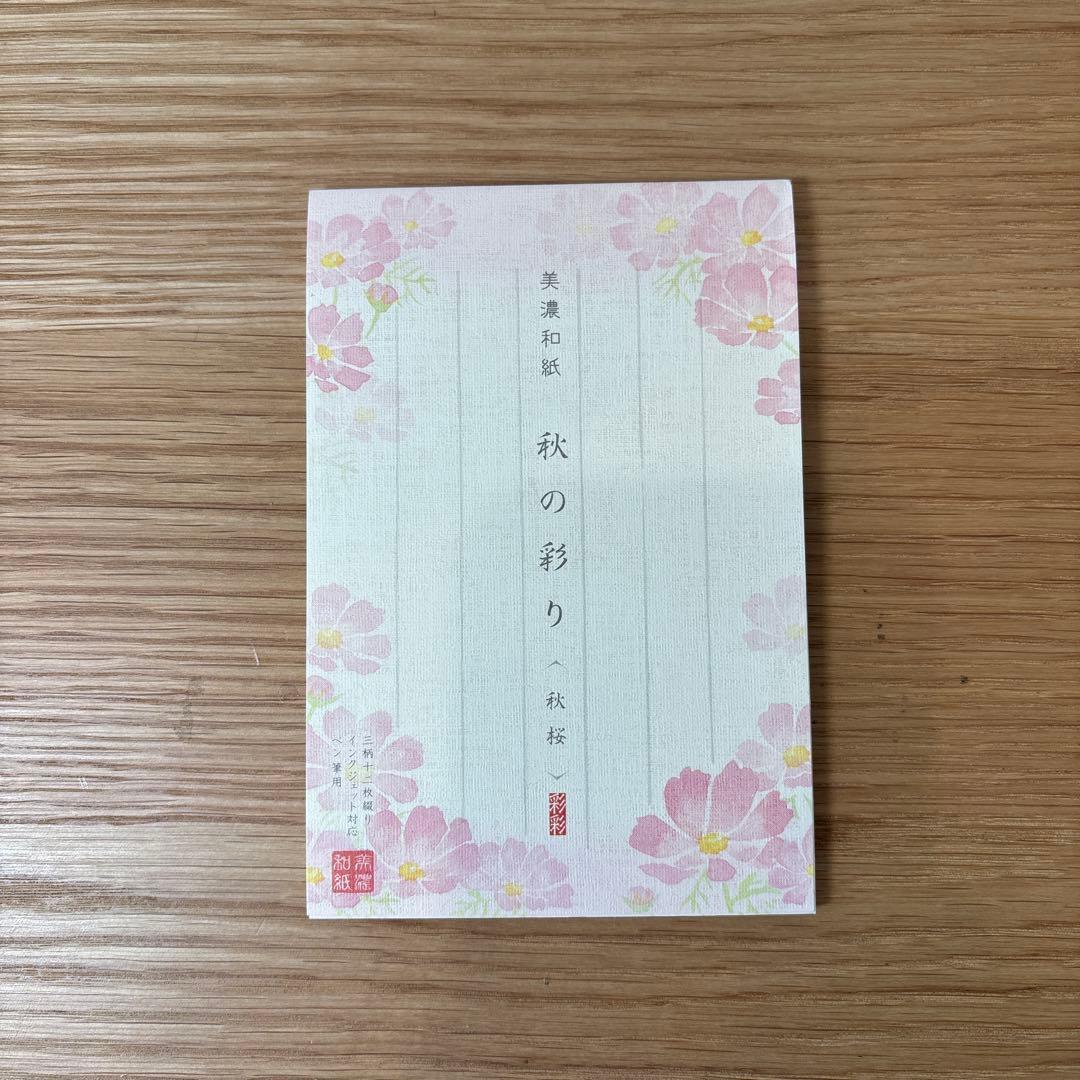 美濃和紙 秋の彩り〈秋桜〉
彩彩
三柄十二枚綴り
インクジェット対応
ペン筆用
美濃
和紙